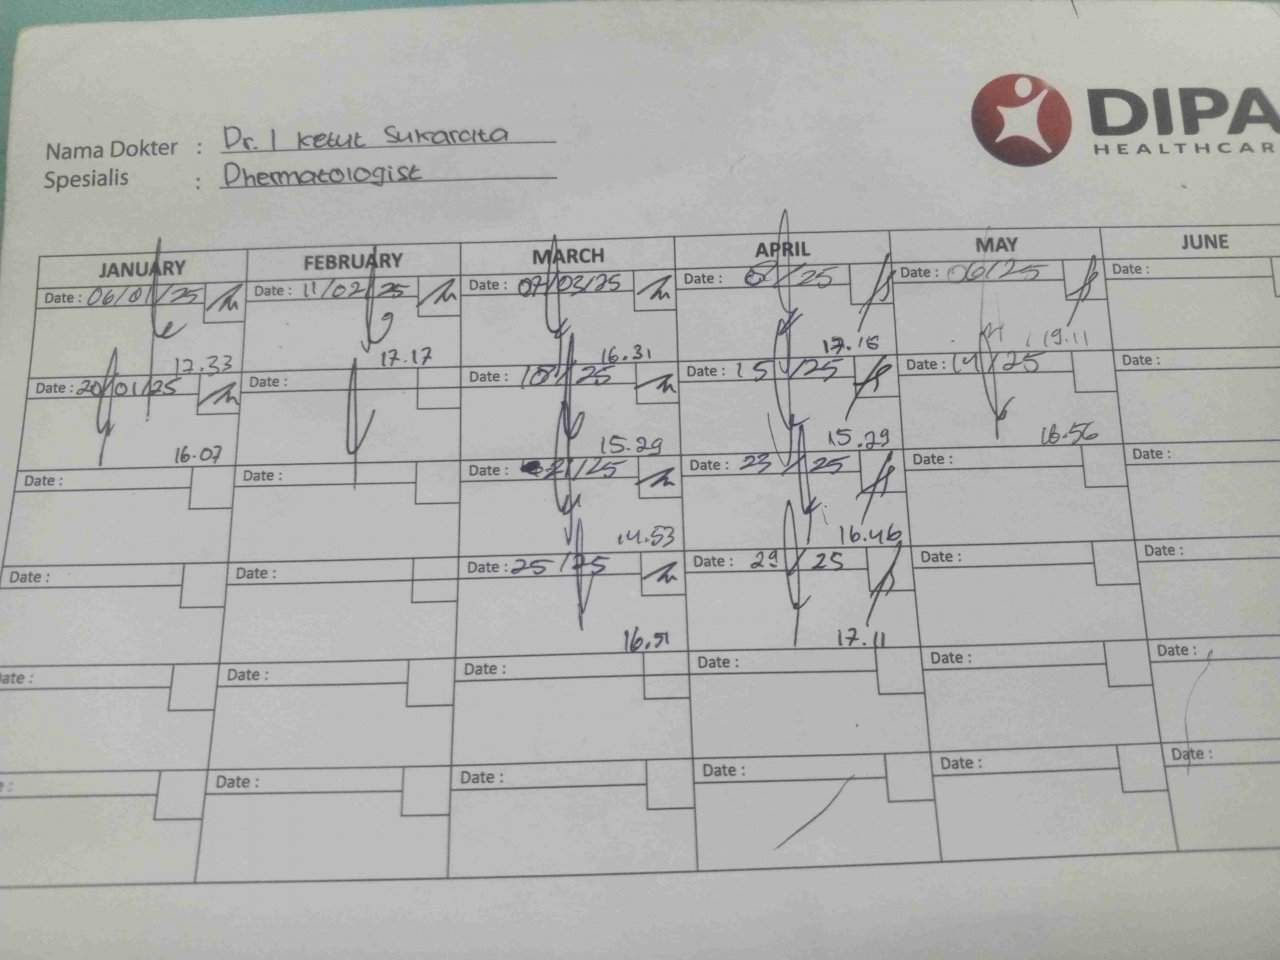 DIPA
HEALTHCAR
Nama Dokter : Dr. I Ketut Sukarata
Spesialis : Dhermatologist
JANUARY FEBRUARY MARCH APRIL MAY JUNE
Date : 06/01/25 Date : 11/02/25 Date : 07/03/25 Date : /25 Date : 06/25 Date :
17.17 16.31 17.15 19.11
Date : 20/01/25 Date : Date : 10/25 Date : 15/25 Date : 14/25 Date :
16.07 15.29 15.29 16.56
Date : Date : Date : 21/25 Date : 23/25 Date : Date :
14.53 16.46
Date : Date : Date : 25/25 Date : 29/25 Date : Date :
16.51 17.11
ate : Date : Date : Date : Date : Date :
Date : Date : Date : Date : Date :